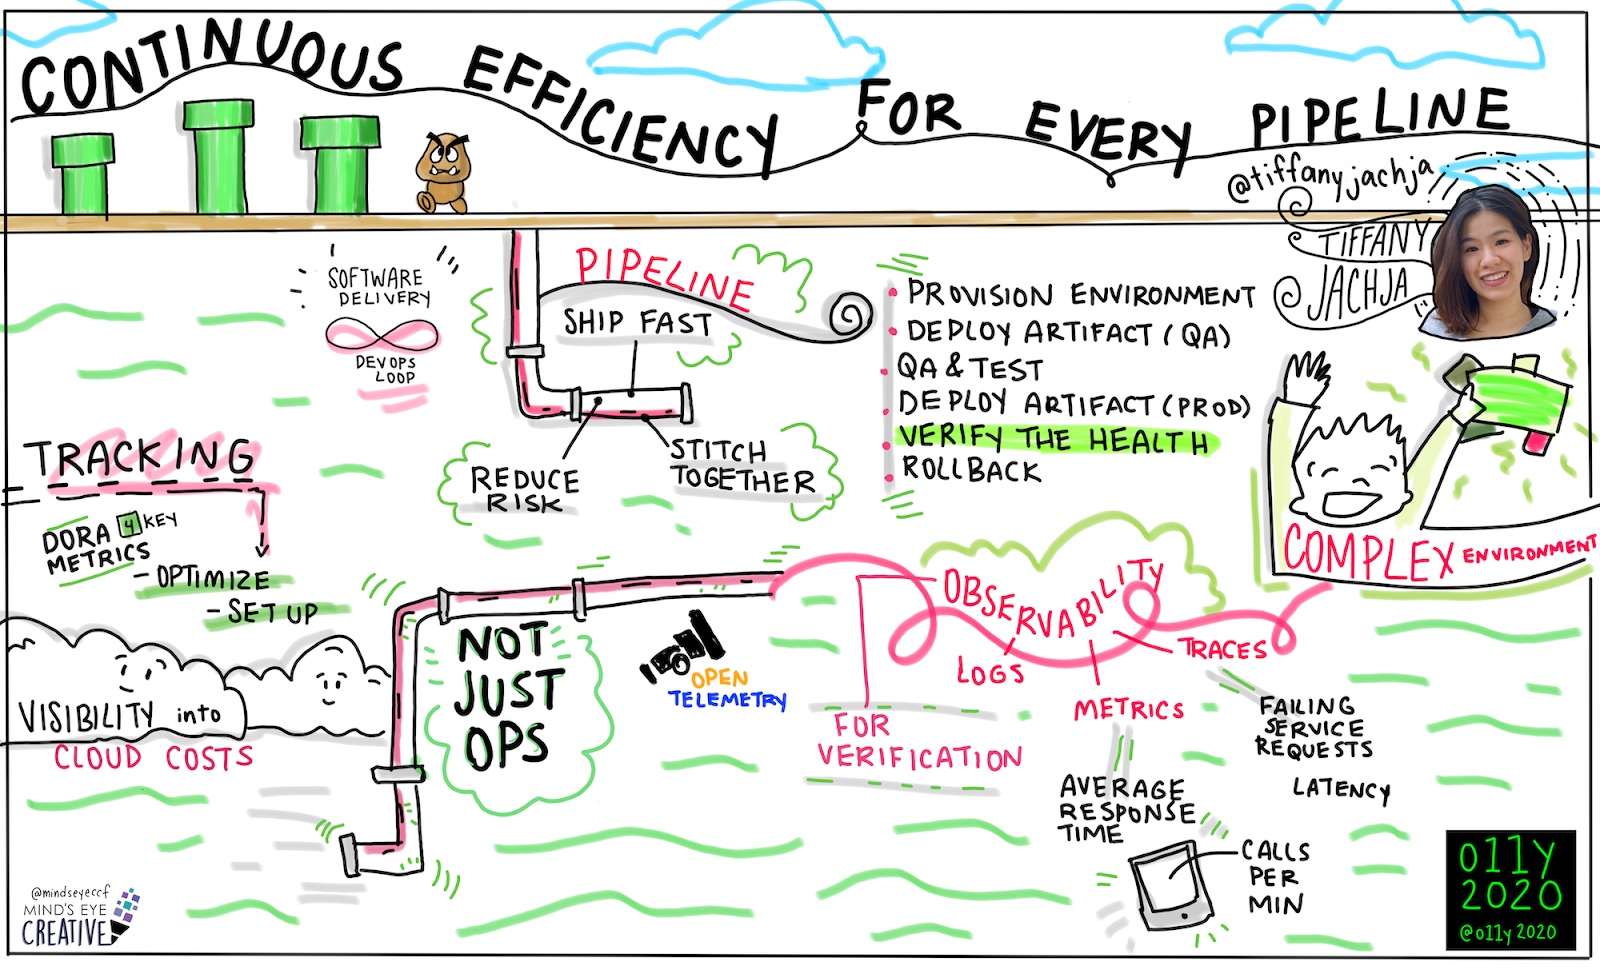 CONTINUOUS EFFICIENCY FOR EVERY PIPELINE
@tiffanyjachja
TIFFANY
JACHJA
SOFTWARE
DELIVERY
DEVOPS
LOOP
PIPELINE
SHIP FAST
REDUCE
RISK
STITCH
TOGETHER
PROVISION ENVIRONMENT
DEPLOY ARTIFACT (QA)
QA & TEST
DEPLOY ARTIFACT (PROD)
VERIFY THE HEALTH
ROLLBACK
COMPLEX ENVIRONMENT
TRACKING
DORA 4 KEY
METRICS
- OPTIMIZE
- SET UP
VISIBILITY into
CLOUD COSTS
NOT
JUST
OPS
OPEN
TELEMETRY
OBSERVABILITY
LOGS
METRICS
TRACES
FOR
VERIFICATION
FAILING
SERVICE
REQUESTS
LATENCY
AVERAGE
RESPONSE
TIME
CALLS
PER
MIN
@mindseyeccf
MIND'S EYE
CREATIVE
o11y
2020
@o11y2020